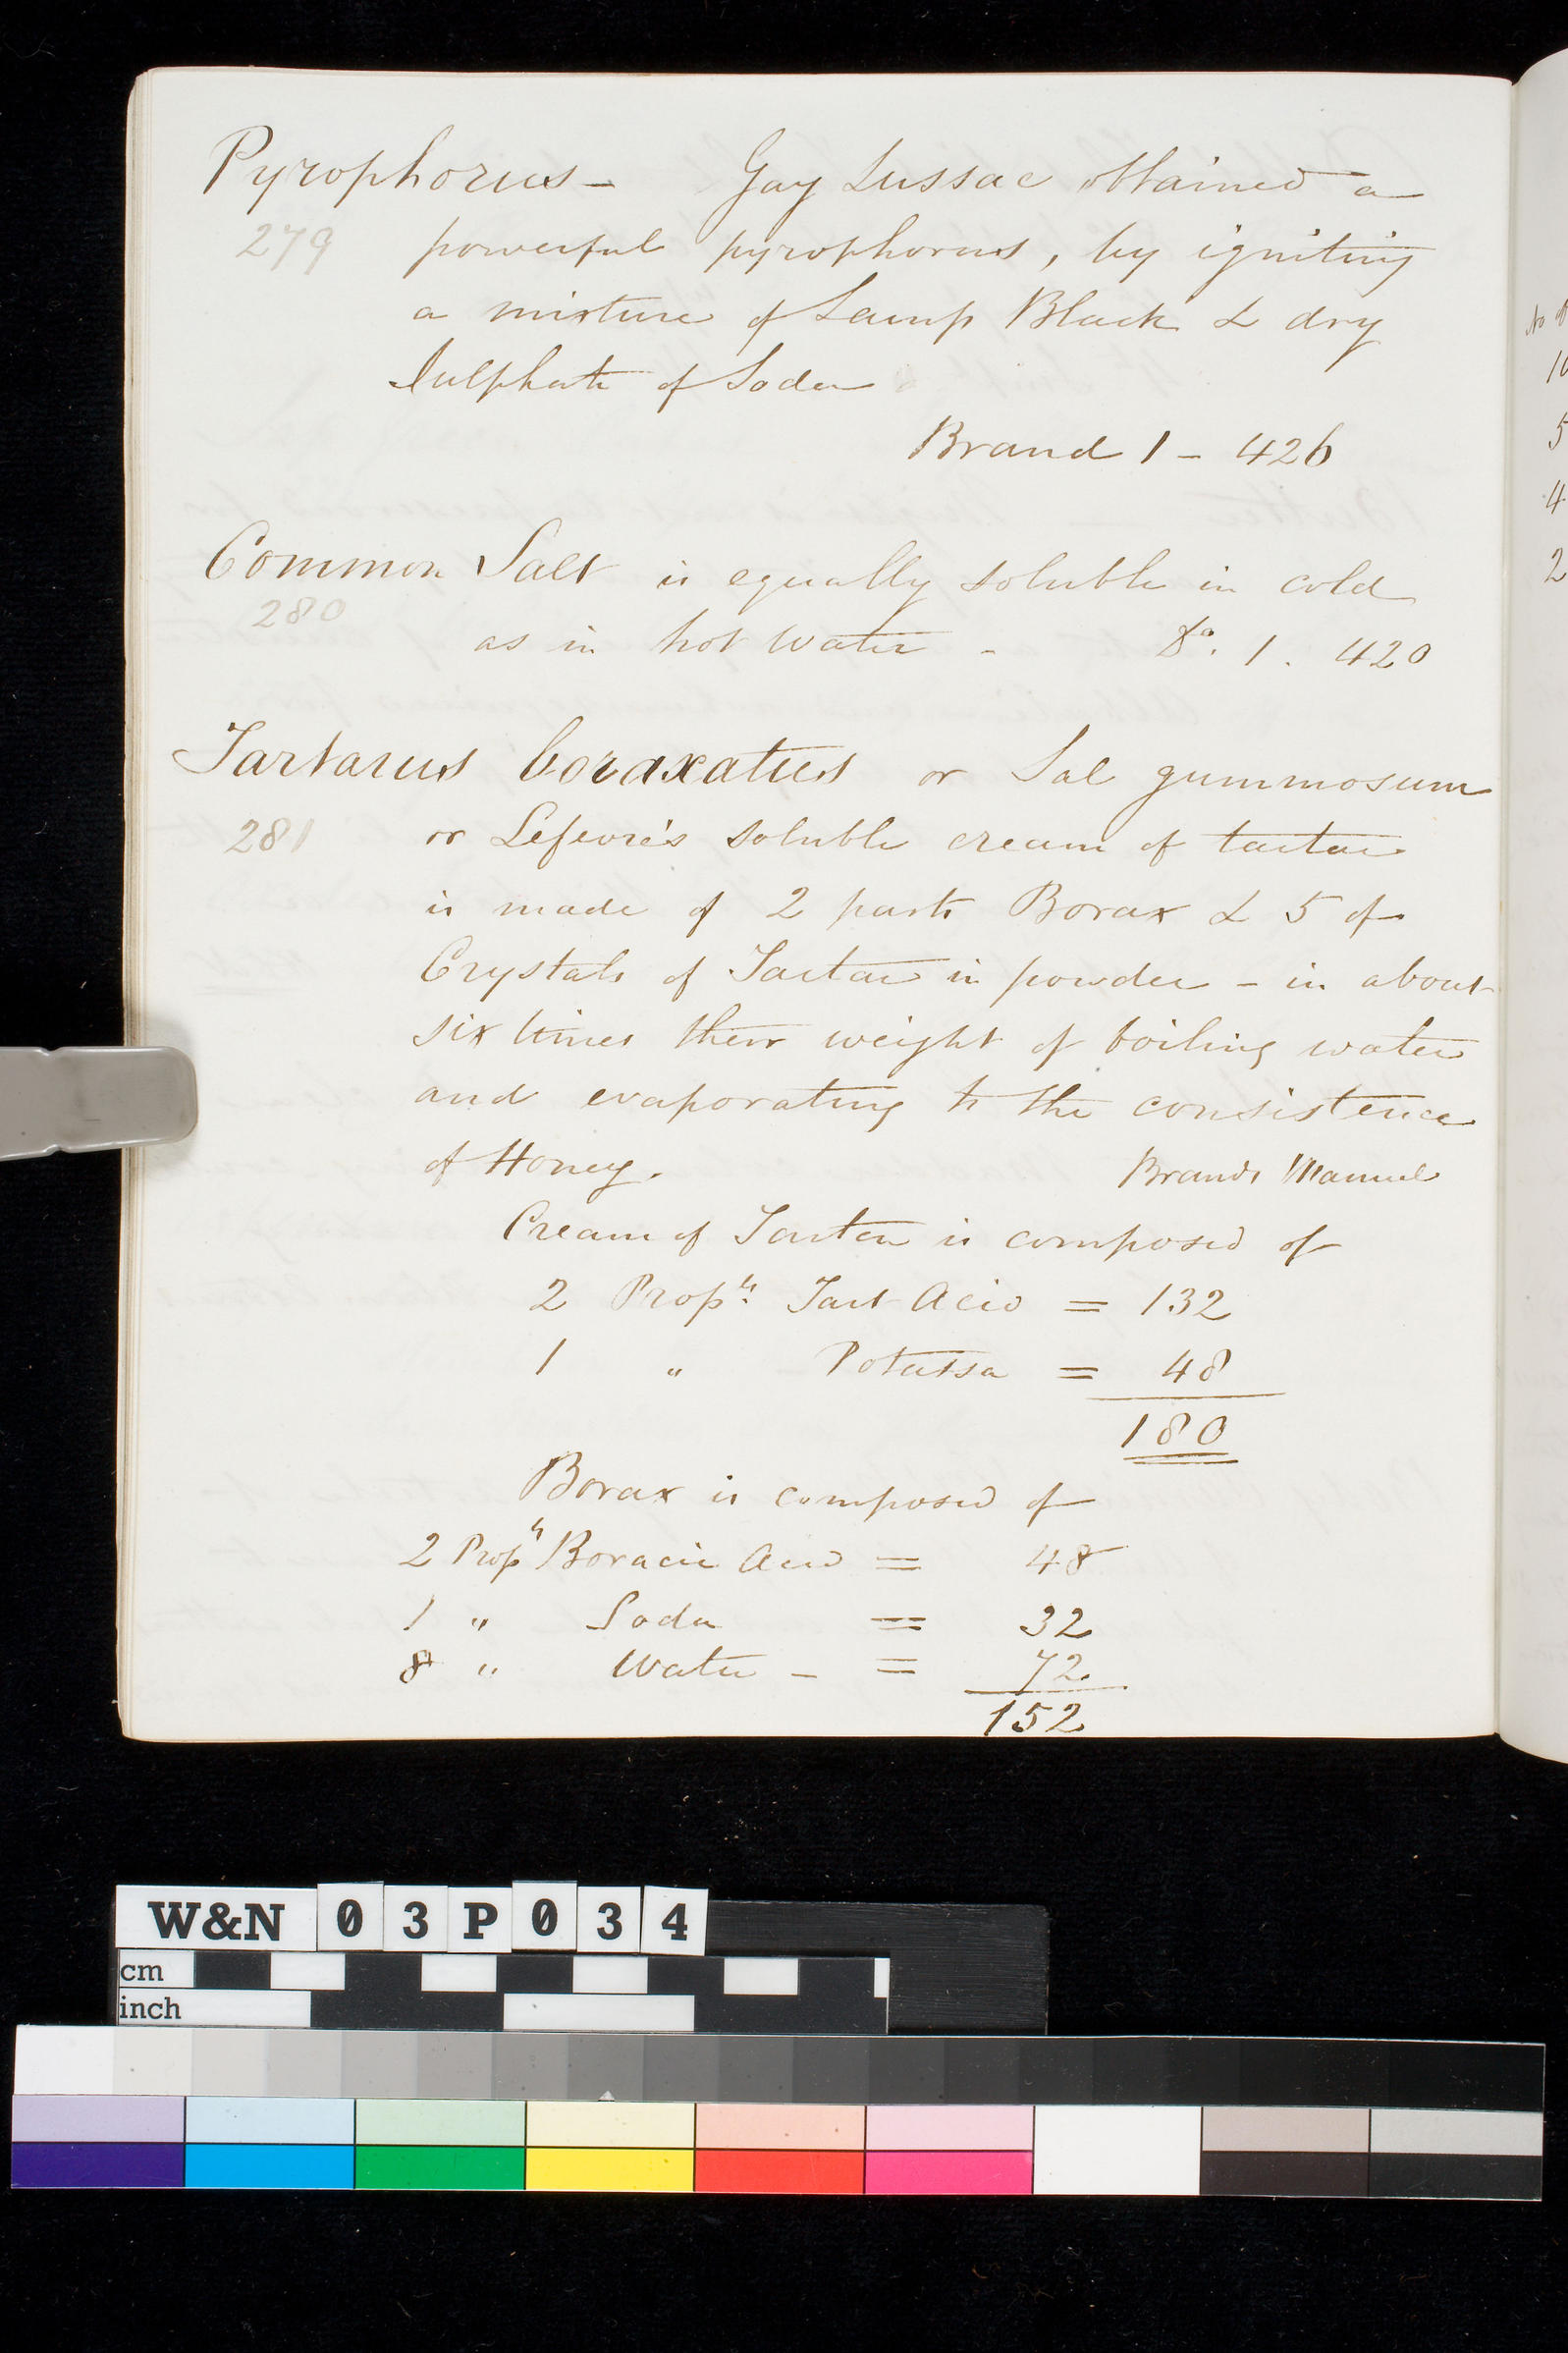 Pyrophorus - Gay Lussac obtained a
279 powerful pyrophorus, by igniting
a mixture of Lamp Black & dry
Sulphate of Soda
Brand 1 - 426
Common Salt is equally soluble in cold
280
as in hot water - Do. 1. 420
Tartarus boraxatus or Sal gummosum
281 or Lefevre's soluble cream of tartar
is made of 2 parts Borax & 5 of
Crystals of Tartar in powder - in about
six times their weight of boiling water
and evaporating to the consistence
of Honey. Brands Manuel
Cream of Tartar is composed of
2 Propns. Tart Acid = 132
1 " Potassa = 48
180
Borax is composed of
2 Propn Boracic Acid = 48
1 " Soda = 32
8 " Water - = 72
152
No of
10
5
4
2
W&N 03P034
cm
inch